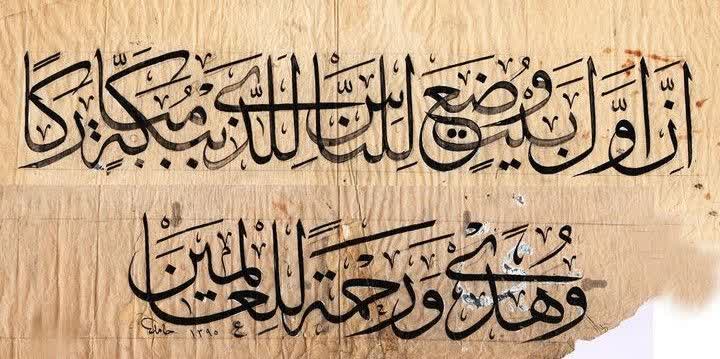 اِنَّ اَوَّلَ بَيْتٍ وُضِعَ لِلنَّاسِ لَلَّذِى بِبَكَّةَ مُبَارَكًا
وَهُدًى وَرَحْمَةً لِلْعَالَمِينَ
١٣٩٥ حامد